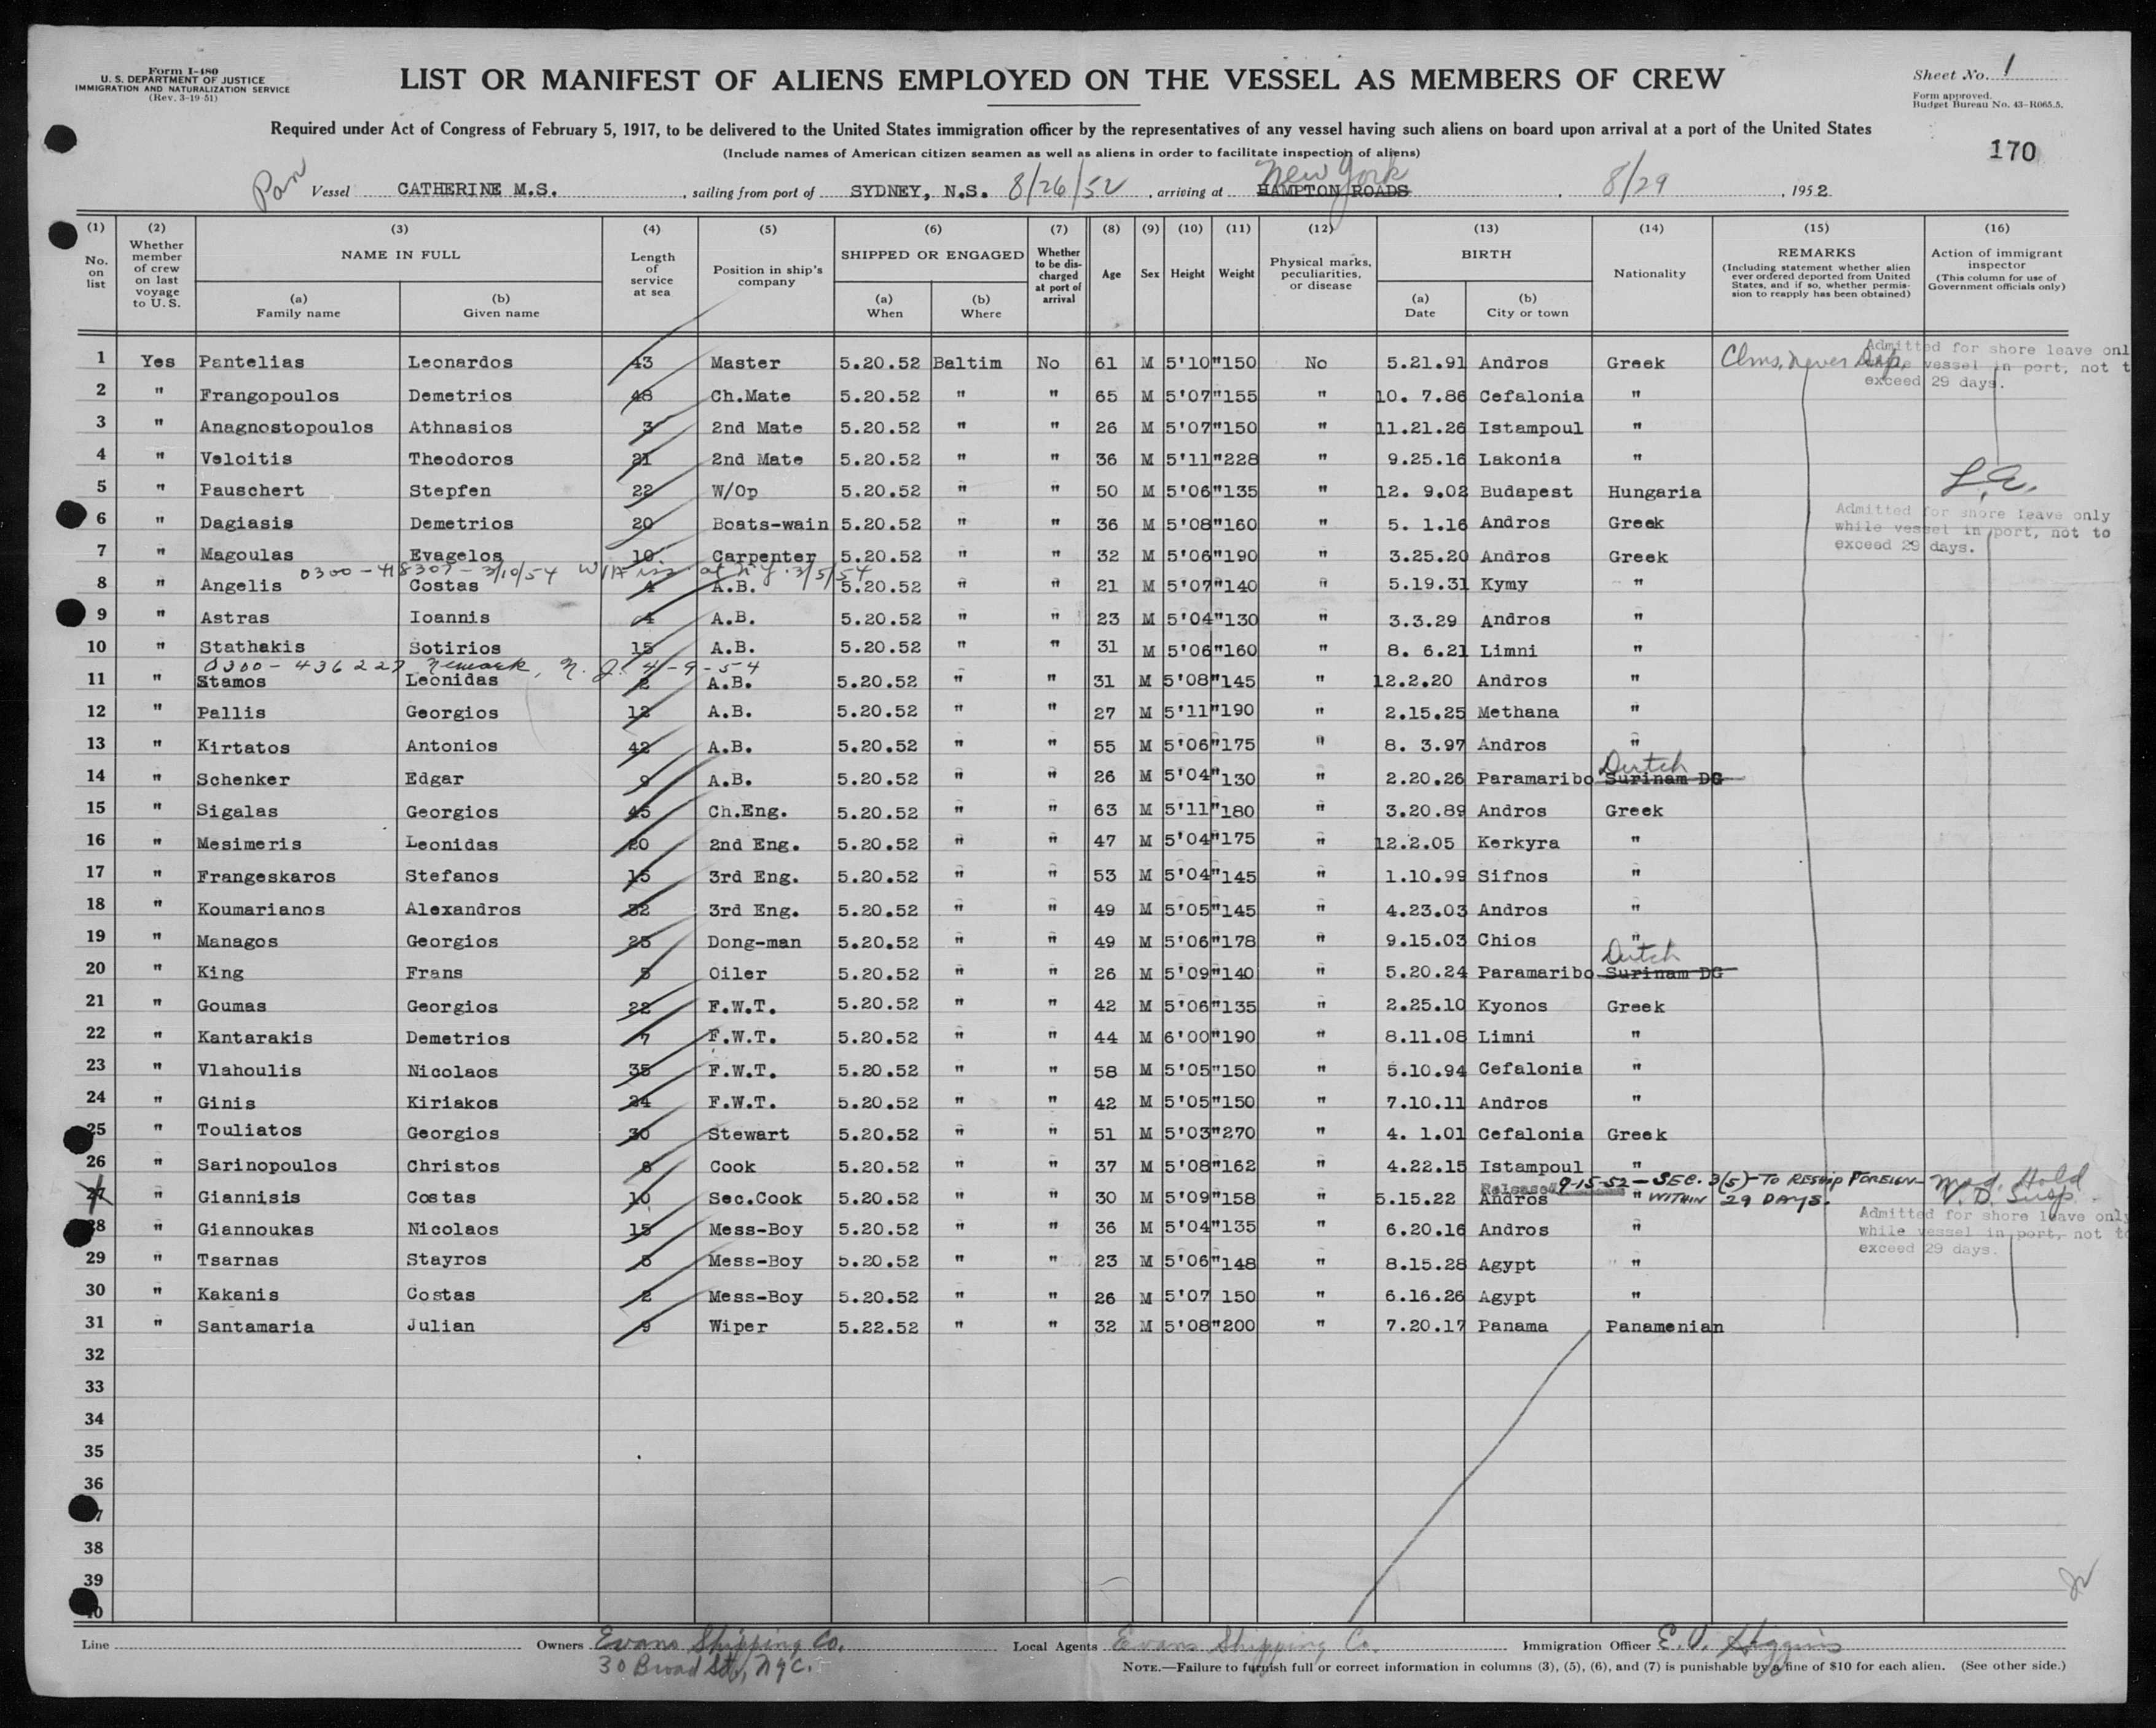 Form I-480
U. S. DEPARTMENT OF JUSTICE
IMMIGRATION AND NATURALIZATION SERVICE
(Rev. 3-19-51)
LIST OR MANIFEST OF ALIENS EMPLOYED ON THE VESSEL AS MEMBERS OF CREW
Sheet No. 1
Form approved.
Budget Bureau No. 43-R065.5.
Required under Act of Congress of February 5, 1917, to be delivered to the United States immigration officer by the representatives of any vessel having such aliens on board upon arrival at a port of the United States
(Include names of American citizen seamen as well as aliens in order to facilitate inspection of aliens)
170
Pan Vessel CATHERINE M.S. , sailing from port of SYDNEY, N.S. 8/26/52 , arriving at HAMPTON ROADS New York , 8/29 , 1952.
(1) No. on list
(2) Whether member of crew on last voyage to U. S.
(3) NAME IN FULL (a) Family name (b) Given name
(4) Length of service at sea
(5) Position in ship's company
(6) SHIPPED OR ENGAGED (a) When (b) Where
(7) Whether to be discharged at port of arrival
(8) Age
(9) Sex
(10) Height
(11) Weight
(12) Physical marks, peculiarities, or disease
(13) BIRTH (a) Date (b) City or town
(14) Nationality
(15) REMARKS (Including statement whether alien ever ordered deported from United States, and if so, whether permission to reapply has been obtained)
(16) Action of immigrant inspector (This column for use of Government officials only)
1 Yes Pantelias Leonardos 43 Master 5.20.52 Baltim No 61 M 5'10" 150 No 5.21.91 Andros Greek Clms. never Dep.
Admitted for shore leave onl
while vessel in port, not t
exceed 29 days.
2 " Frangopoulos Demetrios 48 Ch.Mate 5.20.52 " " 65 M 5'07" 155 " 10. 7.86 Cefalonia "
3 " Anagnostopoulos Athnasios 3 2nd Mate 5.20.52 " " 26 M 5'07" 150 " 11.21.26 Istampoul "
4 " Veloitis Theodoros 21 2nd Mate 5.20.52 " " 36 M 5'11" 228 " 9.25.16 Lakonia "
5 " Pauschert Stepfen 22 W/Op 5.20.52 " " 50 M 5'06" 135 " 12. 9.02 Budapest Hungaria
6 " Dagiasis Demetrios 20 Boats-wain 5.20.52 " " 36 M 5'08" 160 " 5. 1.16 Andros Greek
Admitted for shore leave only
while vessel in port, not to
exceed 29 days.
7 " Magoulas Evagelos 10 Carpenter 5.20.52 " " 32 M 5'06" 190 " 3.25.20 Andros Greek
0300-418307-3/10/54 at N.Y. 3/5/54
8 " Angelis Costas 4 A.B. 5.20.52 " " 21 M 5'07" 140 " 5.19.31 Kymy "
9 " Astras Ioannis 4 A.B. 5.20.52 " " 23 M 5'04" 130 " 3.3.29 Andros "
10 " Stathakis Sotirios 15 A.B. 5.20.52 " " 31 M 5'06" 160 " 8. 6.21 Limni "
0300-436227 Newark, N.J. 4-9-54
11 " Stamos Leonidas 2 A.B. 5.20.52 " " 31 M 5'08" 145 " 12.2.20 Andros "
12 " Pallis Georgios 12 A.B. 5.20.52 " " 27 M 5'11" 190 " 2.15.25 Methana "
13 " Kirtatos Antonios 42 A.B. 5.20.52 " " 55 M 5'06" 175 " 8. 3.97 Andros "
14 " Schenker Edgar 9 A.B. 5.20.52 " " 26 M 5'04" 130 " 2.20.26 Paramaribo Surinam DG Dutch
15 " Sigalas Georgios 45 Ch.Eng. 5.20.52 " " 63 M 5'11" 180 " 3.20.89 Andros Greek
16 " Mesimeris Leonidas 20 2nd Eng. 5.20.52 " " 47 M 5'04" 175 " 12.2.05 Kerkyra "
17 " Frangeskaros Stefanos 15 3rd Eng. 5.20.52 " " 53 M 5'04" 145 " 1.10.99 Sifnos "
18 " Koumarianos Alexandros 32 3rd Eng. 5.20.52 " " 49 M 5'05" 145 " 4.23.03 Andros "
19 " Managos Georgios 25 Dong-man 5.20.52 " " 49 M 5'06" 178 " 9.15.03 Chios "
20 " King Frans 5 Oiler 5.20.52 " " 26 M 5'09" 140 " 5.20.24 Paramaribo Surinam DG Dutch
21 " Goumas Georgios 22 F.W.T. 5.20.52 " " 42 M 5'06" 135 " 2.25.10 Kyonos Greek
22 " Kantarakis Demetrios 7 F.W.T. 5.20.52 " " 44 M 6'00" 190 " 8.11.08 Limni "
23 " Vlahoulis Nicolaos 35 F.W.T. 5.20.52 " " 58 M 5'05" 150 " 5.10.94 Cefalonia "
24 " Ginis Kiriakos 24 F.W.T. 5.20.52 " " 42 M 5'05" 150 " 7.10.11 Andros "
25 " Touliatos Georgios 30 Stewart 5.20.52 " " 51 M 5'03" 270 " 4. 1.01 Cefalonia Greek
26 " Sarinopoulos Christos 8 Cook 5.20.52 " " 37 M 5'08" 162 " 4.22.15 Istampoul "
Released 9-15-52-SEC. 3(5)-TO RESHIP FOREIGN WITHIN 29 DAYS. Med. Hold V.D. Susp.
27 " Giannisis Costas 10 Sec.Cook 5.20.52 " " 30 M 5'09" 158 " 5.15.22 Andros "
28 " Giannoukas Nicolaos 15 Mess-Boy 5.20.52 " " 36 M 5'04" 135 " 6.20.16 Andros "
Admitted for shore leave only
while vessel in port, not to
exceed 29 days.
29 " Tsarnas Stayros 5 Mess-Boy 5.20.52 " " 23 M 5'06" 148 " 8.15.28 Agypt "
30 " Kakanis Costas 2 Mess-Boy 5.20.52 " " 26 M 5'07 150 " 6.16.26 Agypt "
31 " Santamaria Julian 9 Wiper 5.22.52 " " 32 M 5'08" 200 " 7.20.17 Panama Panamenian
32
33
34
35
36
7
38
39
40
Line Owners Evans Shipping Co. Local Agents Evans Shipping Co. Immigration Officer E. V. Higgins
30 Broad St., NYC.
NOTE.—Failure to furnish full or correct information in columns (3), (5), (6), and (7) is punishable by a fine of $10 for each alien. (See other side.)